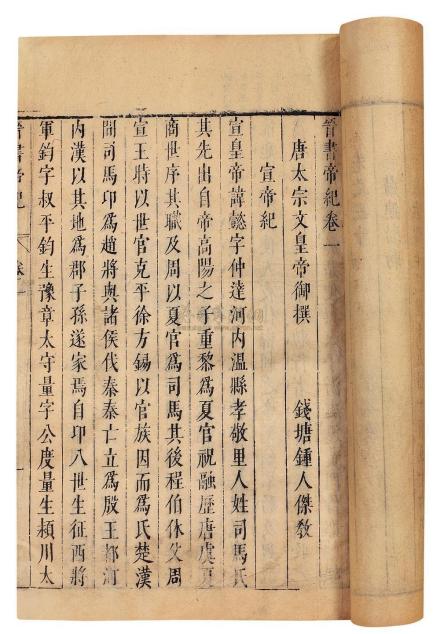 晉書帝紀卷一
唐太宗文皇帝御撰 錢塘鍾人傑敎
宣帝紀
宣皇帝諱懿字仲達河內溫縣孝敬里人姓司馬氏
其先出自帝高陽之子重黎爲夏官祝融歷唐虞夏
商世序其職及周以夏官爲司馬其後程伯休父周
宣王時以世官克平徐方錫以官族因而爲氏楚漢
間司馬卬爲趙將與諸侯伐秦秦亡立爲殷王都河
內漢以其地爲郡子孫遂家焉自卬八世生征西將
軍鈞字叔平鈞生豫章太守量字公度量生潁川太
晉書帝紀 卷一